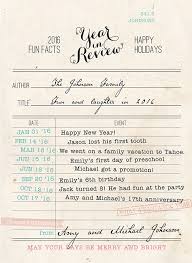 341.5
JOHNSONS
2016
FUN FACTS
Year in Review
HAPPY
HOLIDAYS
AUTHOR The Johnson Family
TITLE Fun and laughter in 2016
DATE EVENT
JAN 01 '16 Happy New Year!
Jason lost his first tooth
We went on a family vacation to Tahoe
Emily's first day of preschool
Michael got a promotion!
SEP 17 '16 Emily's birthday
OCT 06 '16 Jack turned 8! He had fun at the party
Amy and Michael's 17th anniversary
From Amy and Michael Johnson
MAY YOUR DAYS BE MERRY AND BRIGHT